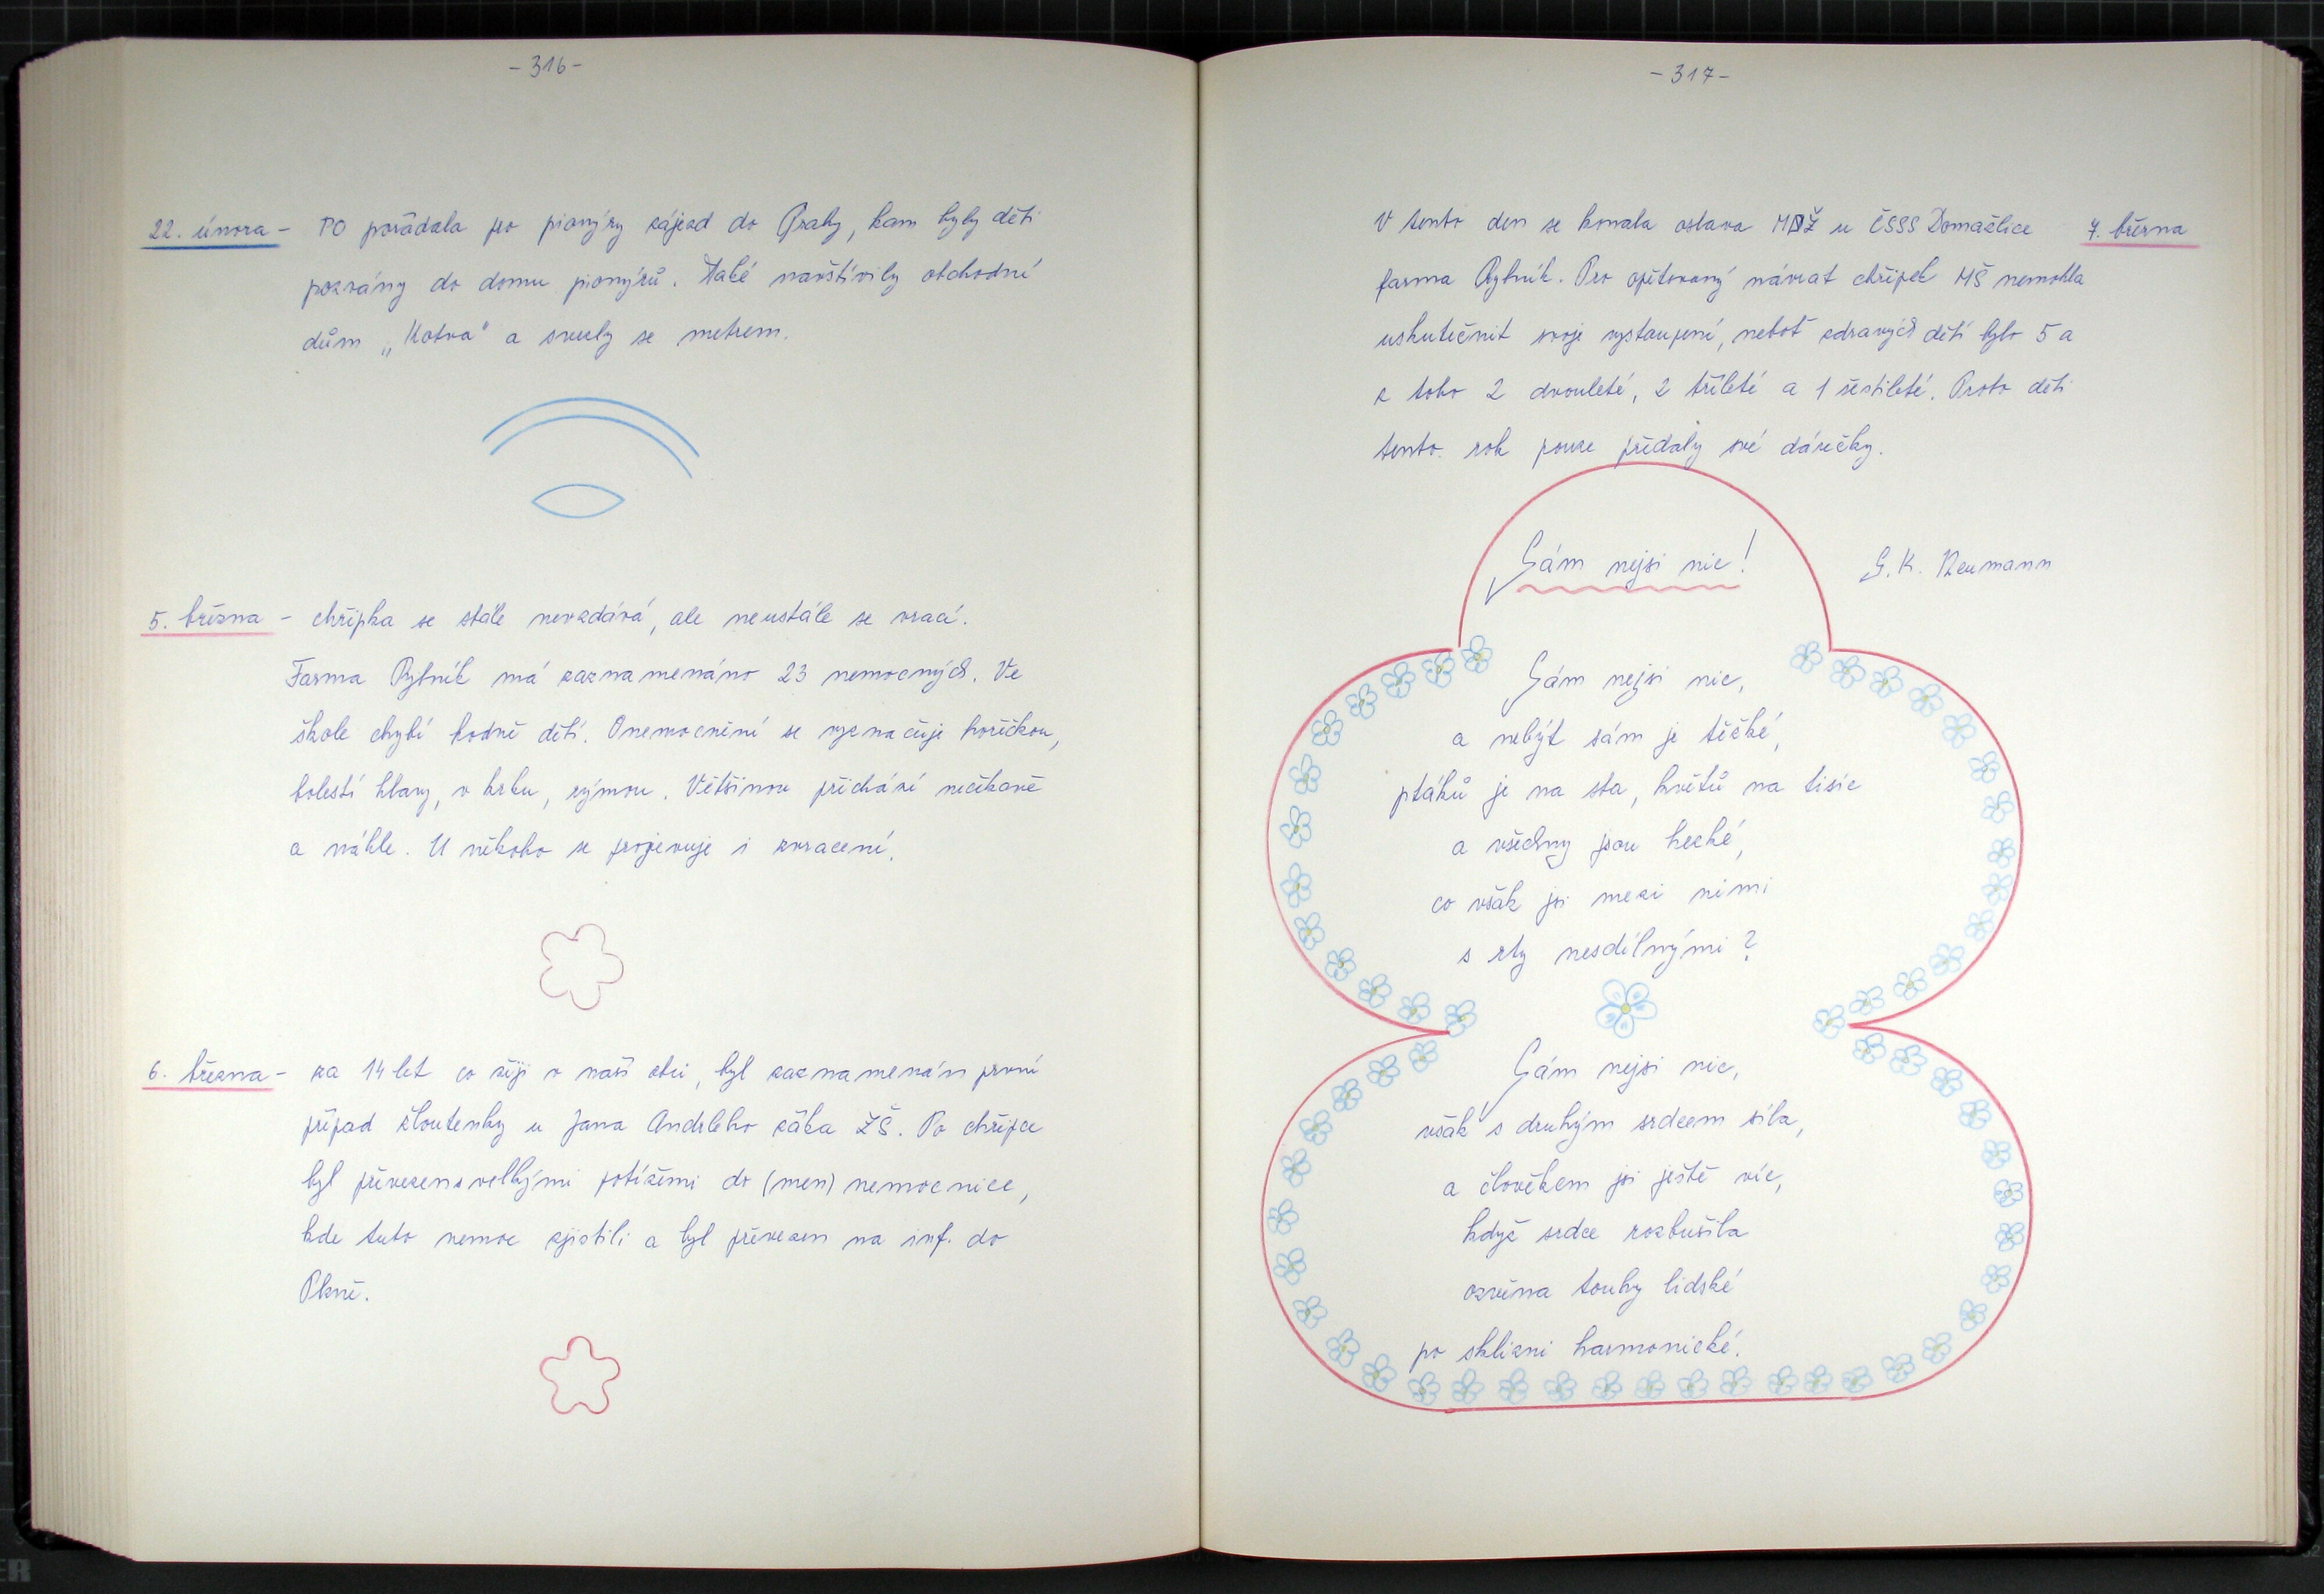 -316-
22. února - PO pořádala pro pionýry zájezd do Prahy, kam byly děti
pozvány do domu pionýrů. Také navštívily obchodní
dům „Kotva" a svezly se metrem.
5. března - chřipka se stále nevzdává, ale neustále se vrací.
Farma Rybník má zaznamenáno 23 nemocných. Ve
škole chybí hodně dětí. Onemocnění se vyznačuje horečkou,
bolestí hlavy, v krku, rýmou. Většinou přichází nečekaně
a náhle. U někoho se projevuje i zvracení.
6. března - za 14 let co žiji v naší obci, byl zaznamenán první
případ žloutenky u Jana Andrleho žáka ZŠ. Po chřipce
byl převezen s velkými potížemi do (men) nemocnice,
kde tuto nemoc zjistili a byl převezen na inf. do
Plzně.
-317-
V tento den se konala oslava MDŽ u ČSSS Domažlice 7. března
farma Rybník. Pro opětovaný návrat chřipek MŠ nemohla
uskutečnit svoje vystoupení, neboť zdravých dětí bylo 5 a
z toho 2 dvouleté, 2 tříleté a 1 šestileté. Proto děti
tento rok pouze předaly své dárečky.
Sám nejsi nic! S. K. Neumann
Sám nejsi nic,
a nebýt sám je těžké,
ptáků je na sta, květů na tisíc
a všechny jsou hezké,
co však jsi mezi nimi
s rty nesdílnými?
Sám nejsi nic,
však s druhým srdcem síla,
a člověkem jsi ještě víc,
když srdce rozbušila
ozvěna touhy lidské
po sklizni harmonické.